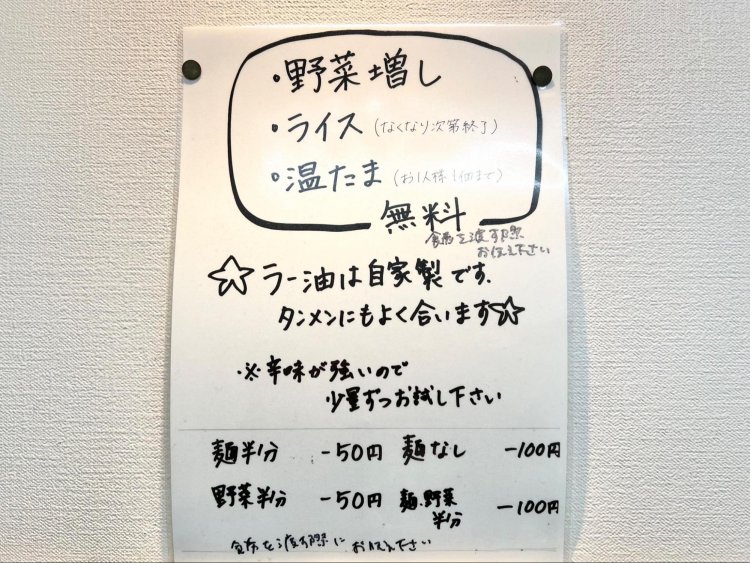 ・野菜増し
・ライス(なくなり次第終了)
・温たま(お1人様1個まで)
無料
食券を渡す際
お伝え下さい
☆ラー油は自家製です.
タンメンにもよく合います☆
※辛味が強いので
少量ずつお試し下さい
麺半分 -50円 麺なし -100円
野菜半分 -50円 麺.野菜半分 -100円
食券を渡す際に お伝え下さい